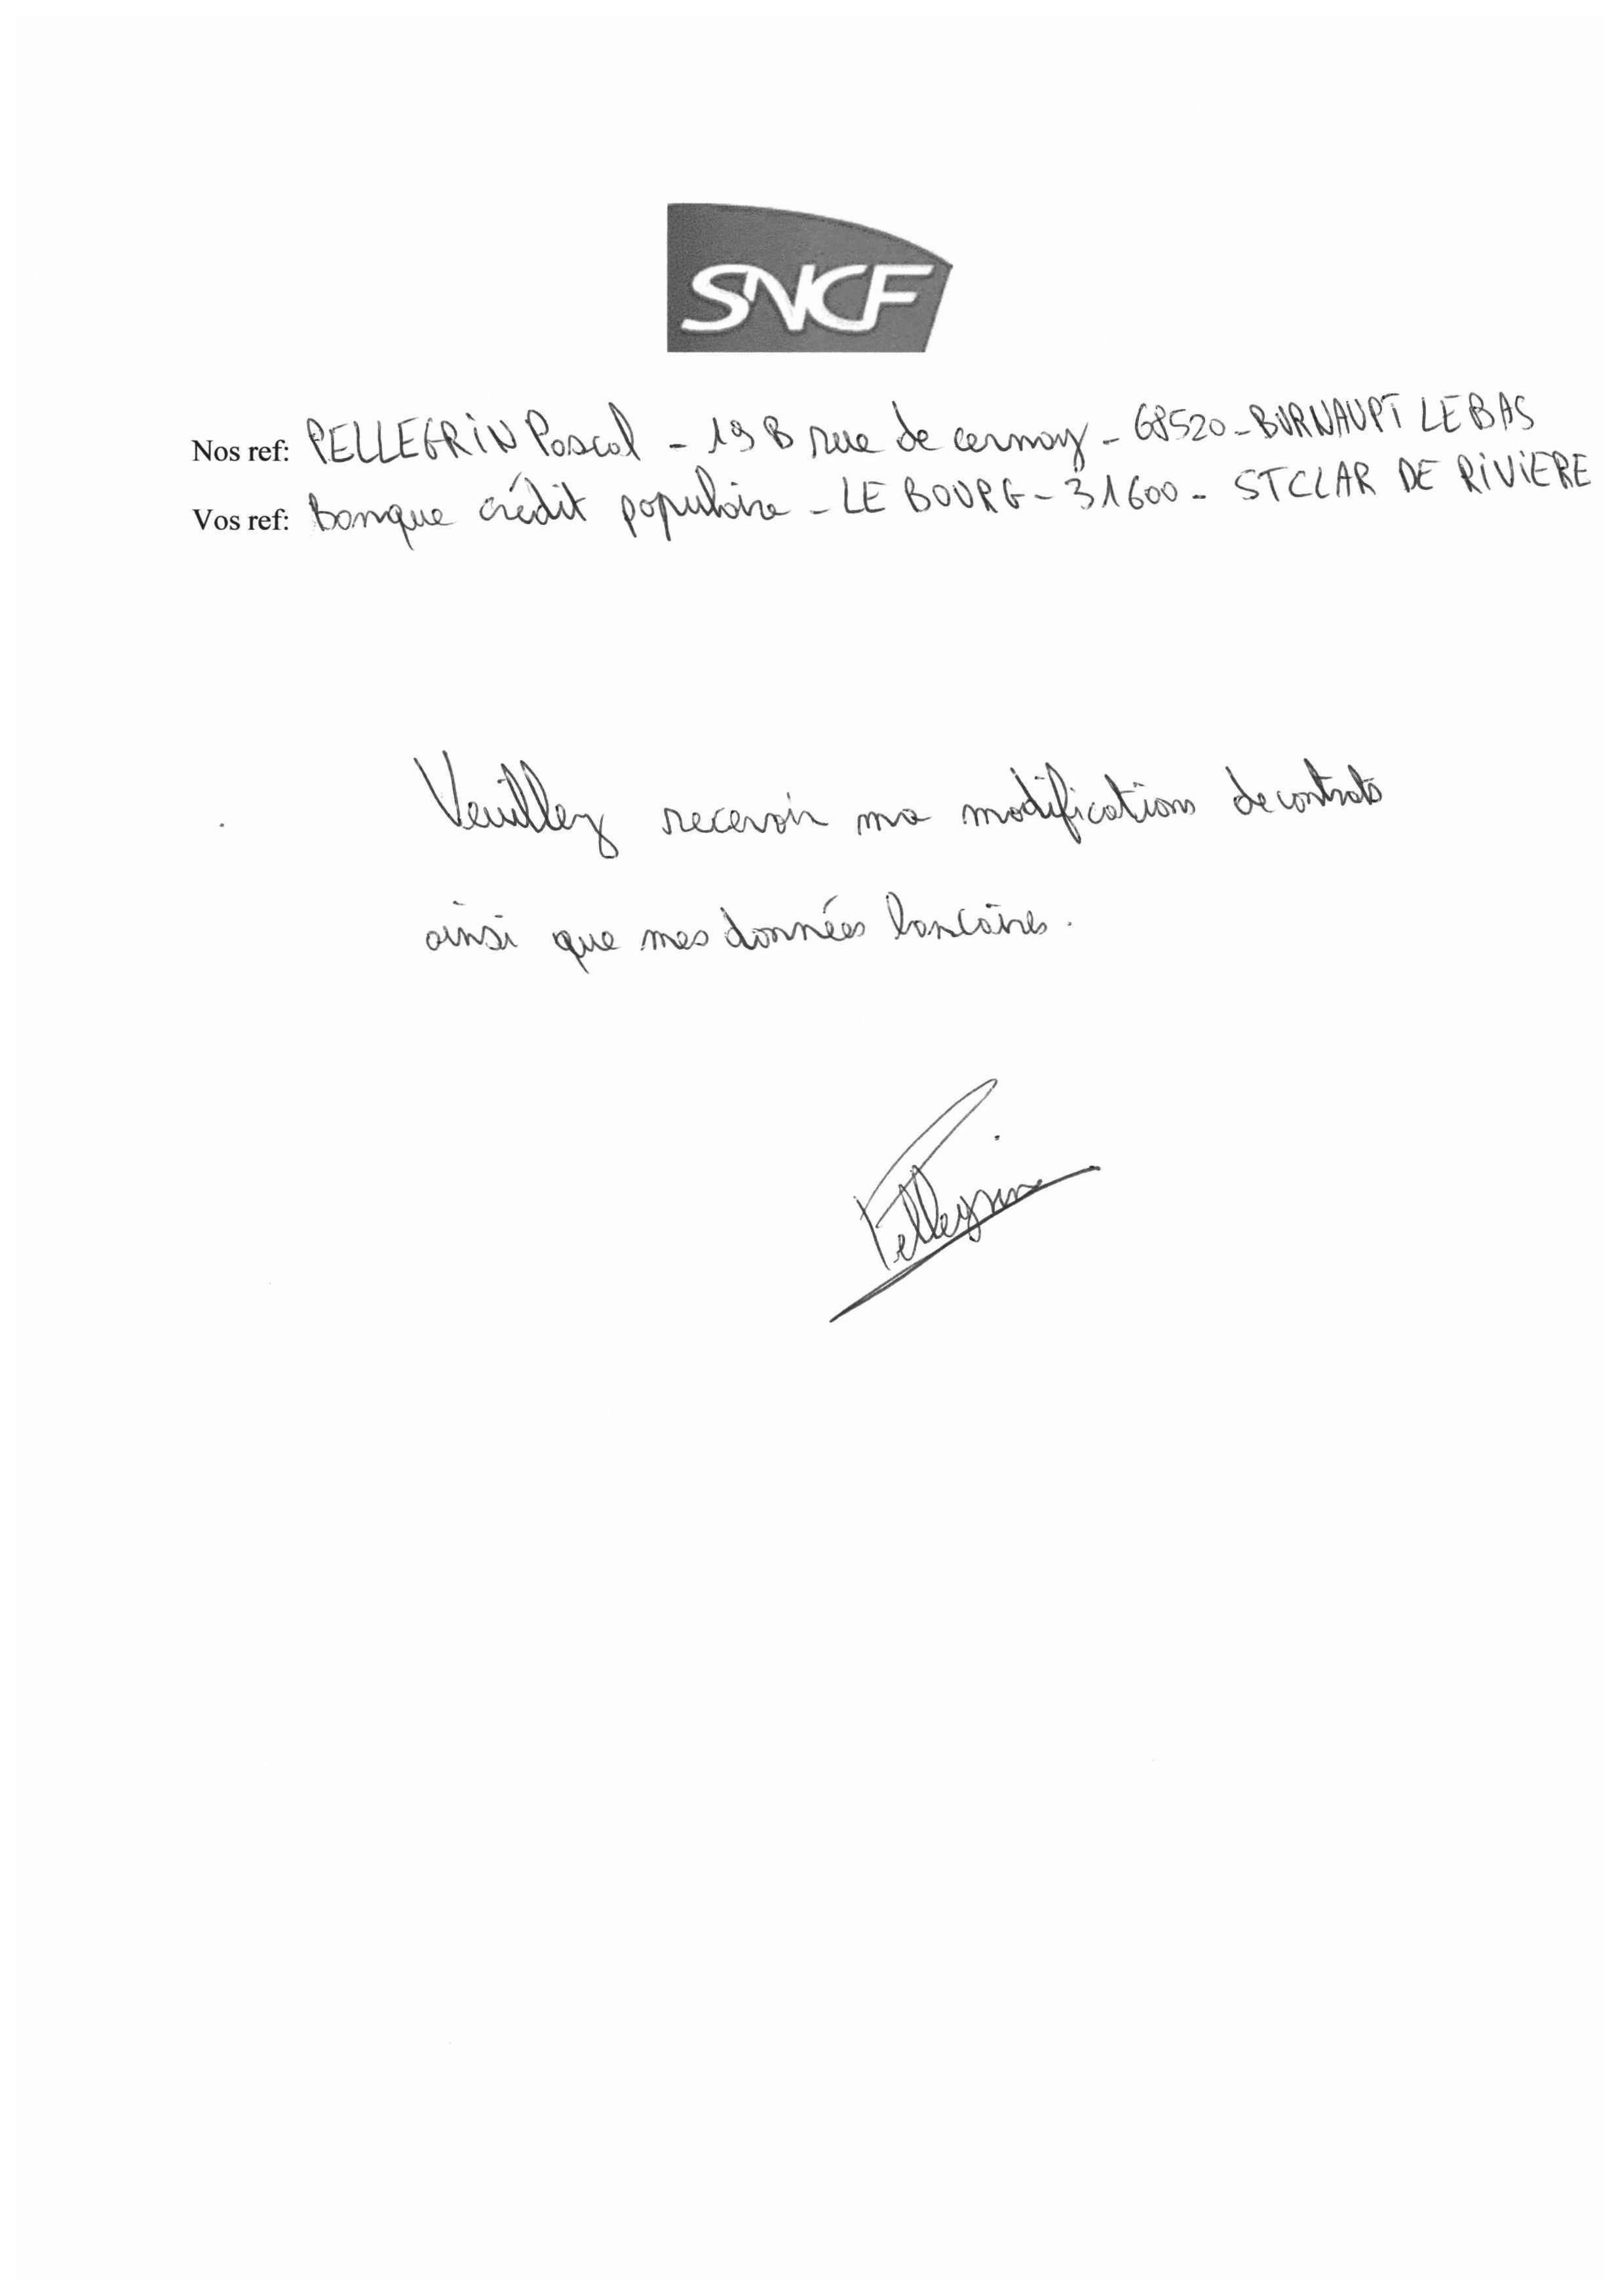 SNCF
Nos ref: PELLEGRIN Pascal - 19 B rue de cernay - 68520 - BURNAUPT LE BAS
Vos ref: Banque crédit populaire - LE BOURG - 31600 - ST CLAR DE RIVIERE
Veuillez recevoir ma modifications de contrats
ainsi que mes données bancaires.
Pellegrin